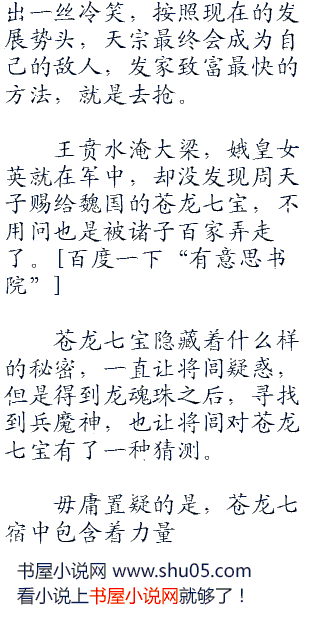 出一丝冷笑，按照现在的发
展势头，天宗最终会成为自
己的敌人，发家致富最快的
方法，就是去抢。
王贲水淹大梁，娥皇女
英就在军中，却没发现周天
子赐给魏国的苍龙七宝，不
用问也是被诸子百家弄走
了。[百度一下“有意思书
院”]
苍龙七宝隐藏着什么样
的秘密，一直让将闾疑惑，
但是得到龙魂珠之后，寻找
到兵魔神，也让将闾对苍龙
七宝有了一种猜测。
毋庸置疑的是，苍龙七
宿中包含着力量
书屋小说网 www.shu05.com
看小说上书屋小说网就够了！